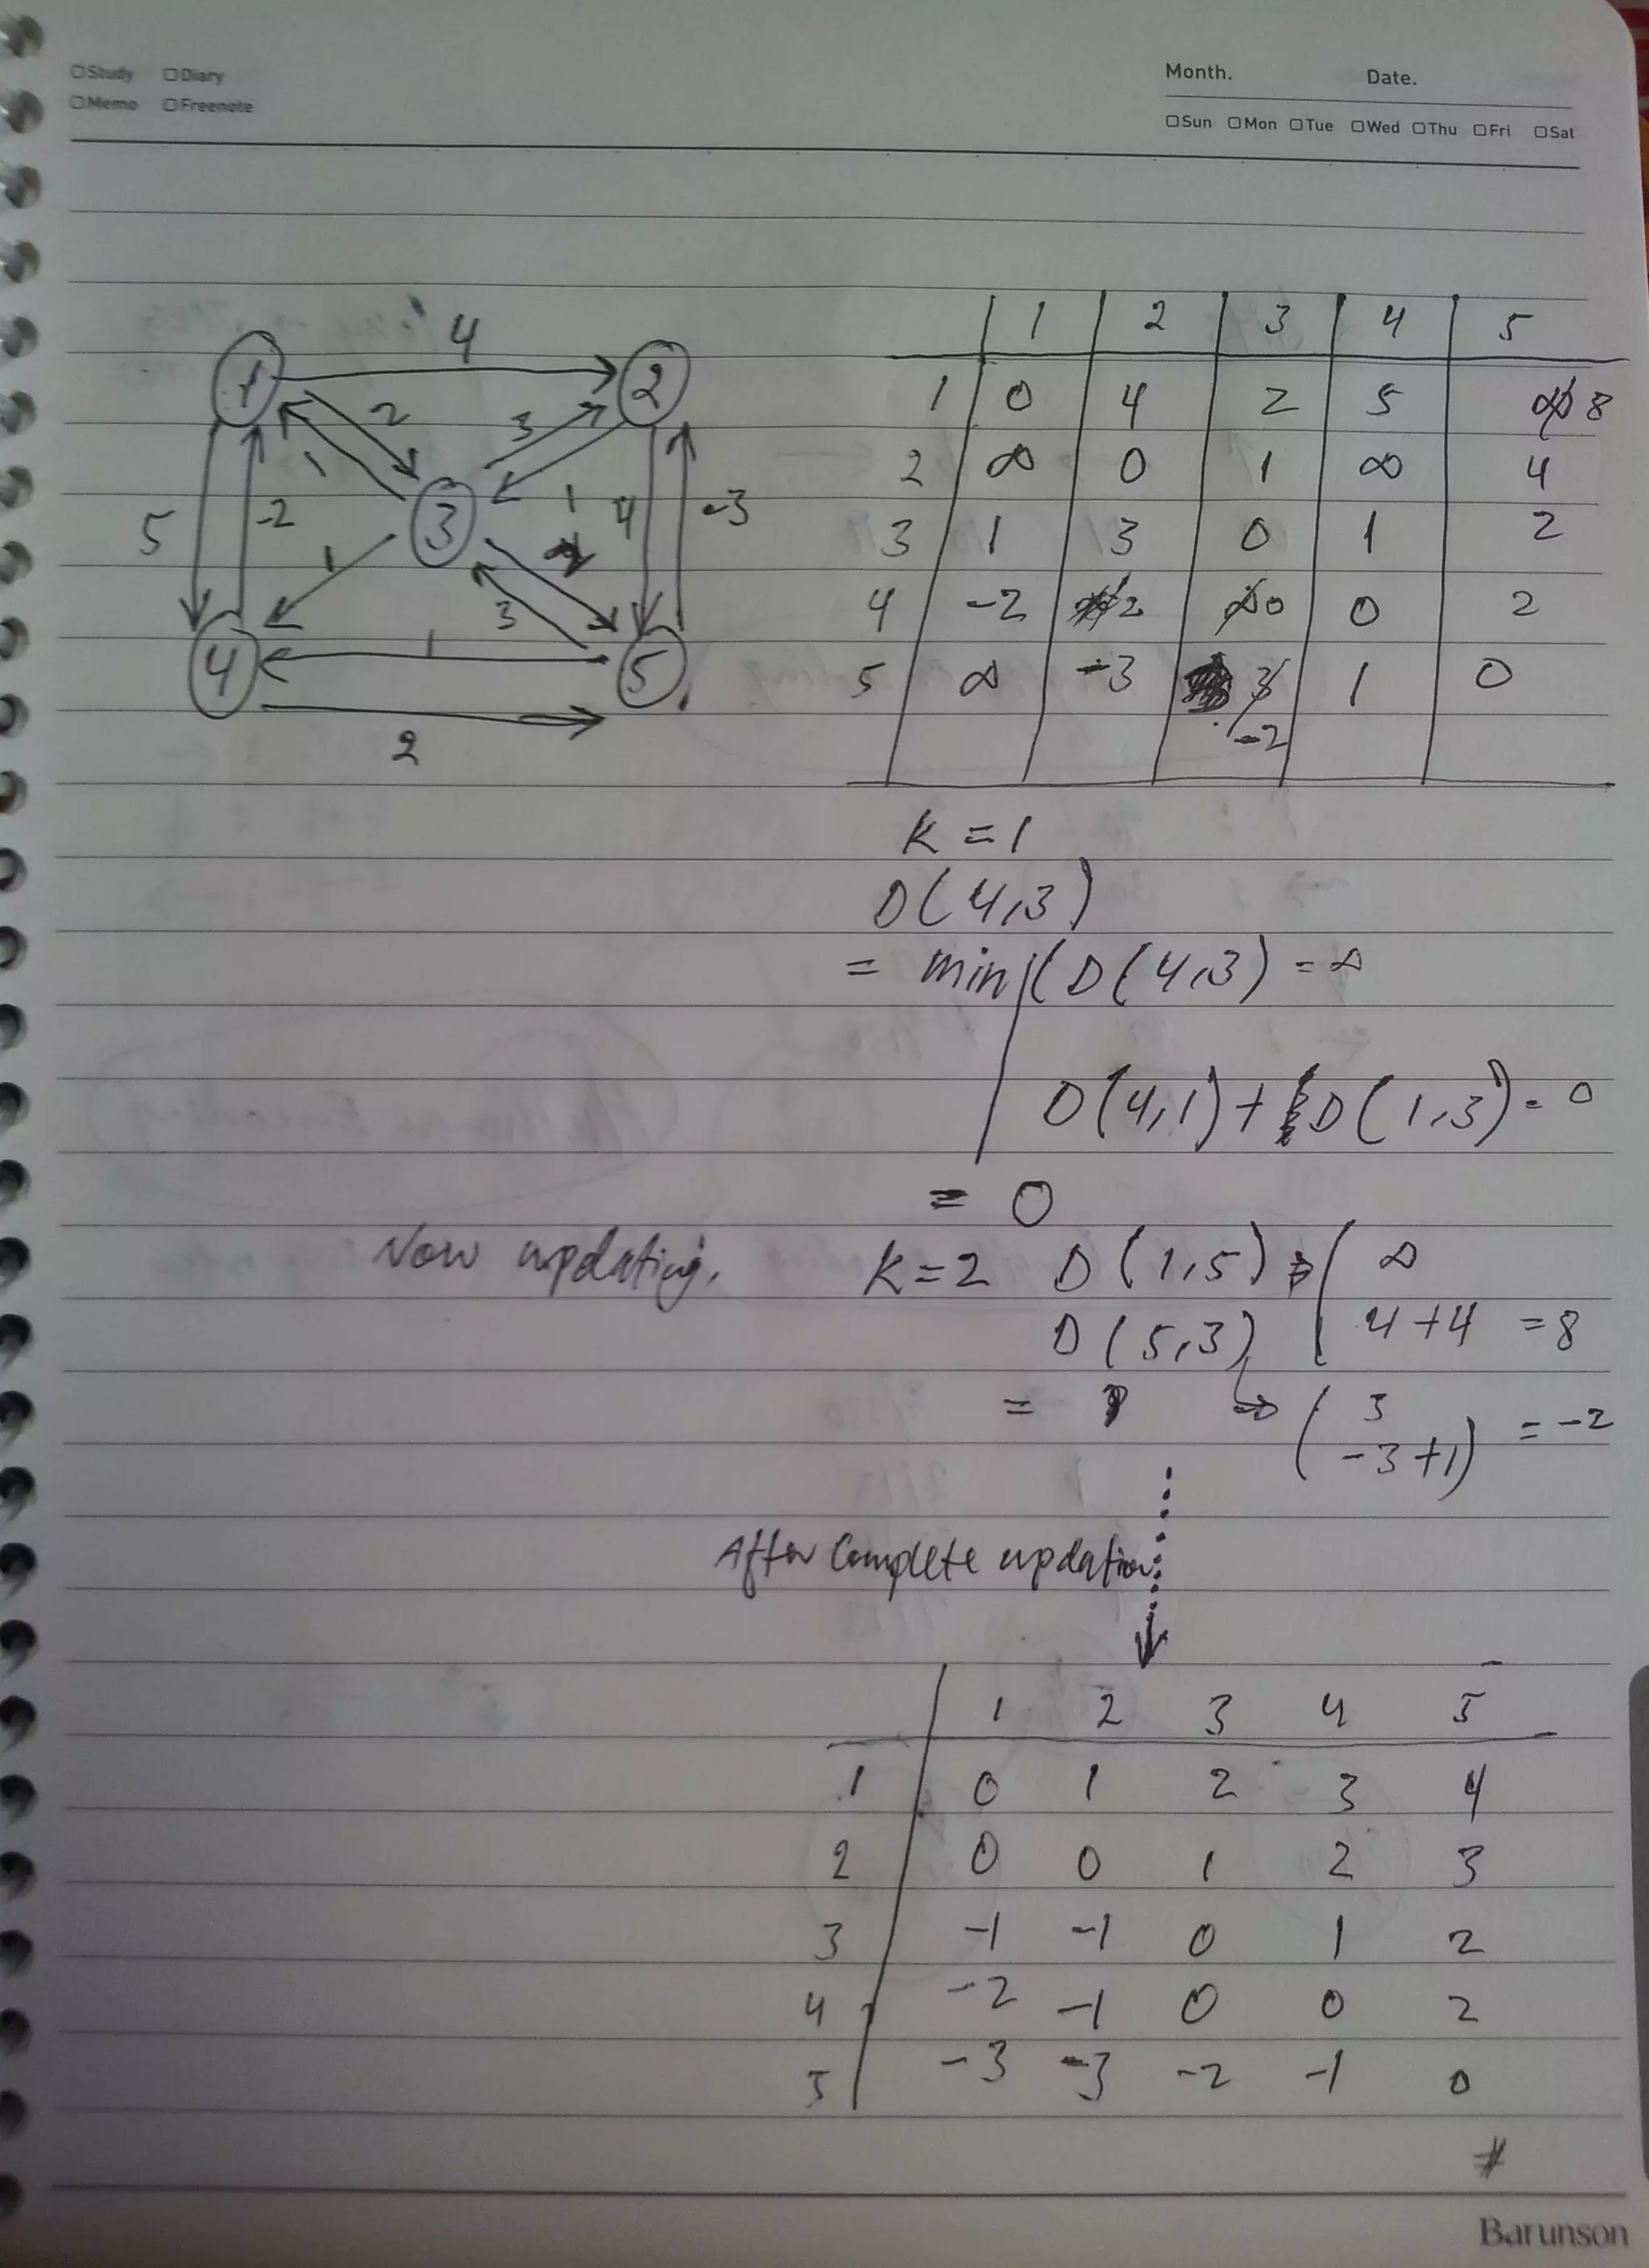 Study Diary
Memo Freenote
Month. Date.
Sun Mon Tue Wed Thu Fri Sat
4
1 2
2 3
1 1
5 -2 3 4 -3
1
3
4 1 5
2
1 2 3 4 5
1 0 4 2 5 ∞ 8
2 ∞ 0 1 ∞ 4
3 1 3 0 1 2
4 -2 2 ∞ 0 0 2
5 ∞ -3 3 1 0
-2
K = 1
D(4,3)
= min (D(4,3) = ∞
D(4,1) + D(1,3) = 0
= 0
Now updating.
K=2 D(1,5) ∞
D(5,3) 4+4 = 8
= → 3
(-3+1) = -2
After Complete updation
1 2 3 4 5
1 0 1 2 3 4
2 0 0 1 2 3
3 -1 -1 0 1 2
4 -2 -1 0 0 2
5 -3 -3 -2 -1 0
#
Barunson